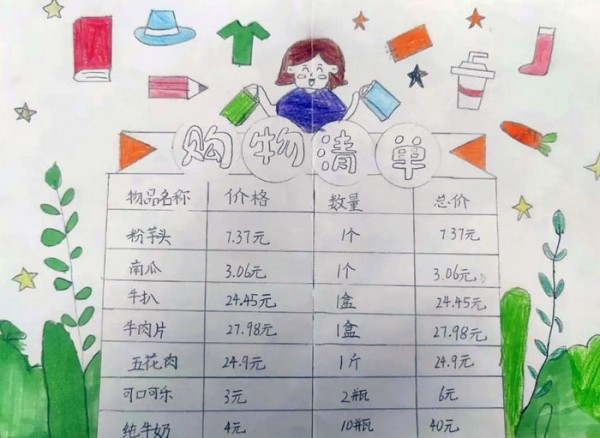 购物清单
物品名称 价格 数量 总价
粉芋头 7.37元 1个 7.37元
南瓜 3.06元 1个 3.06元
牛扒 24.45元 1盒 24.45元
牛肉片 27.98元 1盒 27.98元
五花肉 24.9元 1斤 24.9元
可口可乐 3元 2瓶 6元
纯牛奶 4元 10瓶 40元